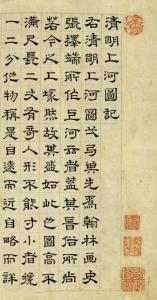 清明上河圖記
右清明上河圖翰林畫史
張擇端所作上河云者蓋其旹俗所尚
若今之上冢然故其盛如此也圖高不
滿尺長二丈有奇人形不能寸小者纔
一二分他物稱是自遠而近自略而詳